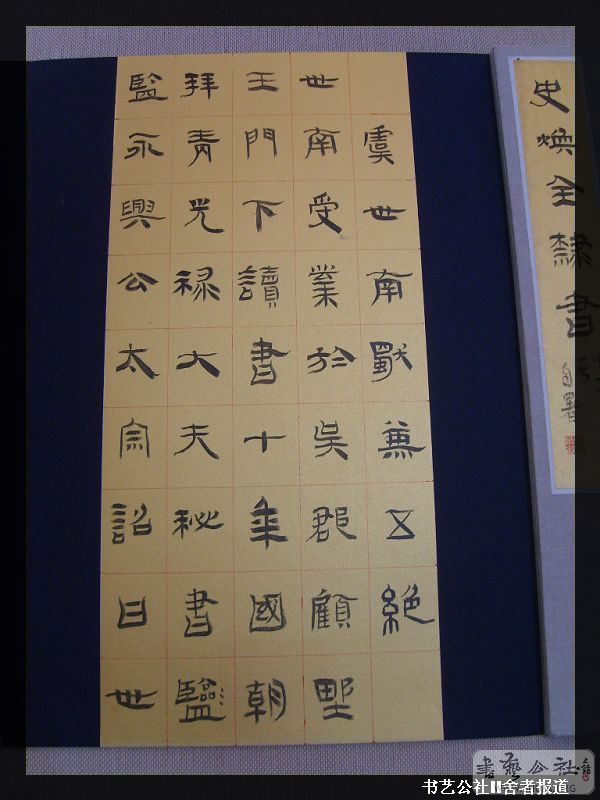 史煥全隸書
自署
虞世南獨兼五絕
世南受業於吳郡顧野
王門下讀書十年國朝
拜青光祿大夫秘書監
監永興公太宗詔曰世
書藝公社
书艺公社II舍者报道